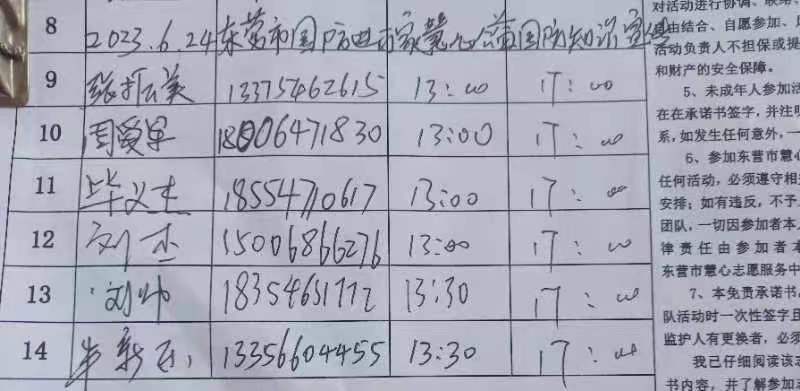 8 2023.6.24东营市国防进万家慧心公益国防知识宣传
9 张振美 13375462615 13:00 17:00
10 周爱军 18006471830 13:00 17:00
11 毕义杰 18554710617 13:00 17:00
12 刘杰 15006866276 13:00 17:00
13 刘帅 18354651772 13:30 17:00
14 13356604455 13:30 17:00
对活动进行协调、联络、
由结合、自愿参加、
活动负责人不担保或提
和财产的安全保障。
5、未成年人参加活
在在承诺书签字，并注明
系，如发生任何意外，一
6、参加东营市慧心
任何活动，必须遵守相
安排；如有违反，不予
团队，一切因参加者本
律责任由参加者本
东营市慧心志愿服务中
7、本免责承诺书
队活动时一次性签字且
监护人有更换者，必须
我已仔细阅读该志
书内容，并了解参加